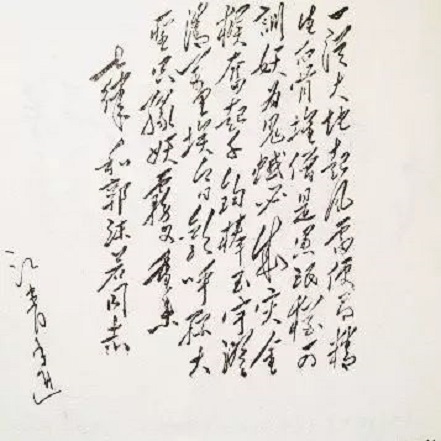 一從大地起風雷便有精
生白骨堆僧是愚氓犹可
訓妖为鬼蜮必成灾金
猴奮起千鈞棒玉宇澄
清萬里埃今日歡呼孫大
聖只緣妖霧又重来
七律 和郭沫若同志
江青